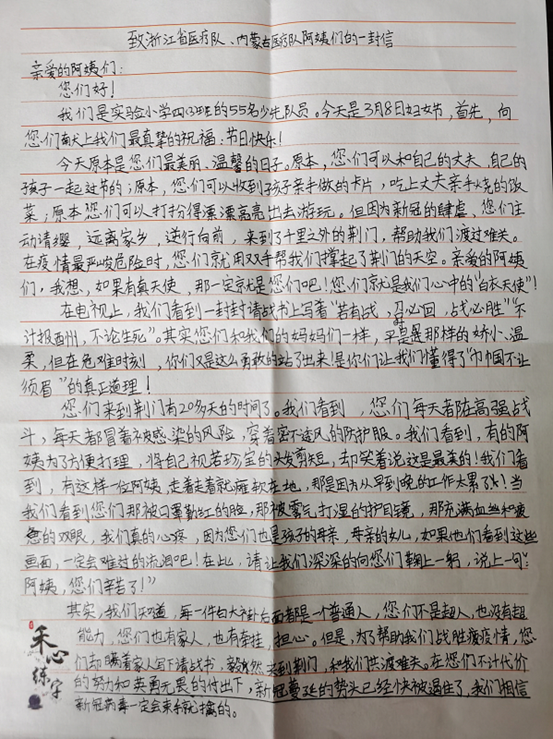 致浙江省医疗队、内蒙古医疗队阿姨们的一封信
亲爱的阿姨们：
您们好！
我们是实验小学四(3)班的55名少先队员。今天是3月8日妇女节，首先，向
您们献上我们最真挚的祝福：节日快乐！
今天原本是您们最美丽、温馨的日子。原本，您们可以和自己的丈夫、自己的
孩子一起过节的；原本，您们可以收到孩子亲手做的卡片，吃上丈夫亲手烧的饭
菜；原本您们可以打扮得漂漂亮亮出去游玩。但因为新冠的肆虐，您们主
动请缨，远离家乡，逆行向前，来到了千里之外的荆门，帮助我们渡过难关。
在疫情最严峻危险时，您们就用双手帮我们撑起了荆门的天空。亲爱的阿姨
们，我想，如果有真天使，那一定就是您们吧！您们就是我们心中的"白衣天使"！
在电视上，我们看到一封封请战书上写着"若有战，召必回，战必胜""不
计报酬，不论生死"。其实您们和我们的妈妈们一样，平是是那样的娇小、温
柔，但在危难时刻，你们又是这么勇敢的站了出来！是你们让我们懂得了"巾帼不让
须眉"的真正道理！
您们来到荆门有20多天的时间了。我们看到，您们每天都在高强战
斗，每天都冒着被感染的风险，穿着密不透风的防护服。我们看到，有的阿
姨为了方便打理，将自己视若珍宝的头发剪短，却笑着说这是最美的！我们看
到，有这样一位阿姨，走着走着就瘫软在地，那是因为从早到晚的工作太累了！当
我们看到您们那被口罩勒红的脸，那被雾气打湿的护目镜，那充满血丝和疲
惫的双眼，我们真的心疼，因为您们也是孩子的母亲，母亲的女儿，如果他们看到这些
画面，一定会难过的流泪吧！在此，请让我们深深的向您们鞠上一躬，说上一句："
阿姨，您们辛苦了！"
其实，我们知道，每一件白大褂后面都是一个普通人，您们不是超人，也没有超
能力，您们也有家人，也有牵挂，担心。但是，为了帮助我们战胜疫情，您
们却瞒着家人写下请战书，毅然来到荆门，和我们共渡难关。在您们不计代价
的努力和英勇无畏的付出下，新冠蔓延的势头已经快被遏住了，我们相信
新冠病毒一定会束手就擒的。
禾心
练字